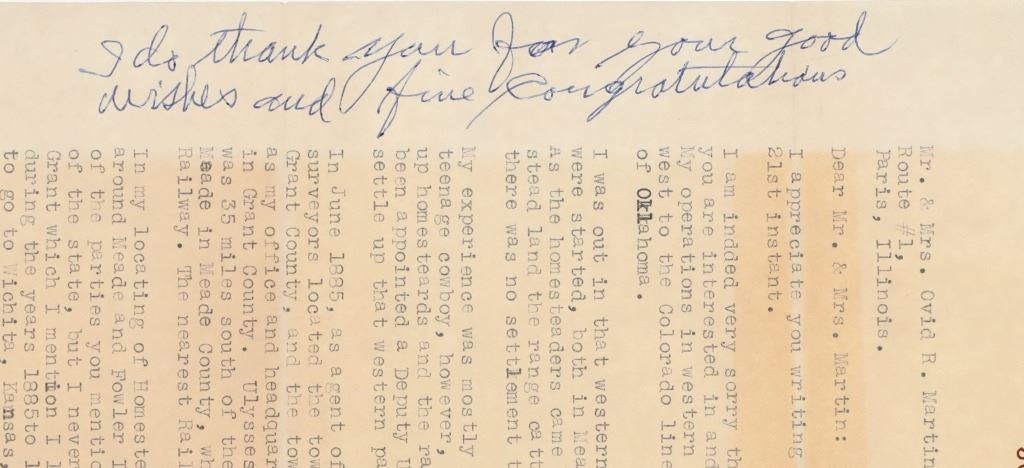 I do thank you for your good
wishes and fine Congratulations
Mr. & Mrs. Ovid R. Martin
Route #1,
Paris, Illinois.
Dear Mr. & Mrs. Martin:
I appreciate you writing
21st instant.
I am indded very sorry th
you are interested in and
My operations in western
west to the Colorado line
of Oklahoma.
I was out in that western
were started, both in Mea
As the homesteaders came
stead land the range catt
there was no settlement t
My experience was mostly
teenage cowboy, however,
up homesteards and the ra
been appointed a Deputy U
settle up that western pa
In June 1885, as agent of
surveyors located the tow
Grant County, and the tow
as my office and headquar
in Grant County. Ulysses
was 35 miles south of the
Meade in Meade County, wh
Railway. The nearest Rail
In my locating of Homeste
around Meade and Fowler I
of the parties you mentic
of the state, but I never
Grant which I mention I l
during the years 1885to l
to go to Wichita, Kansas,